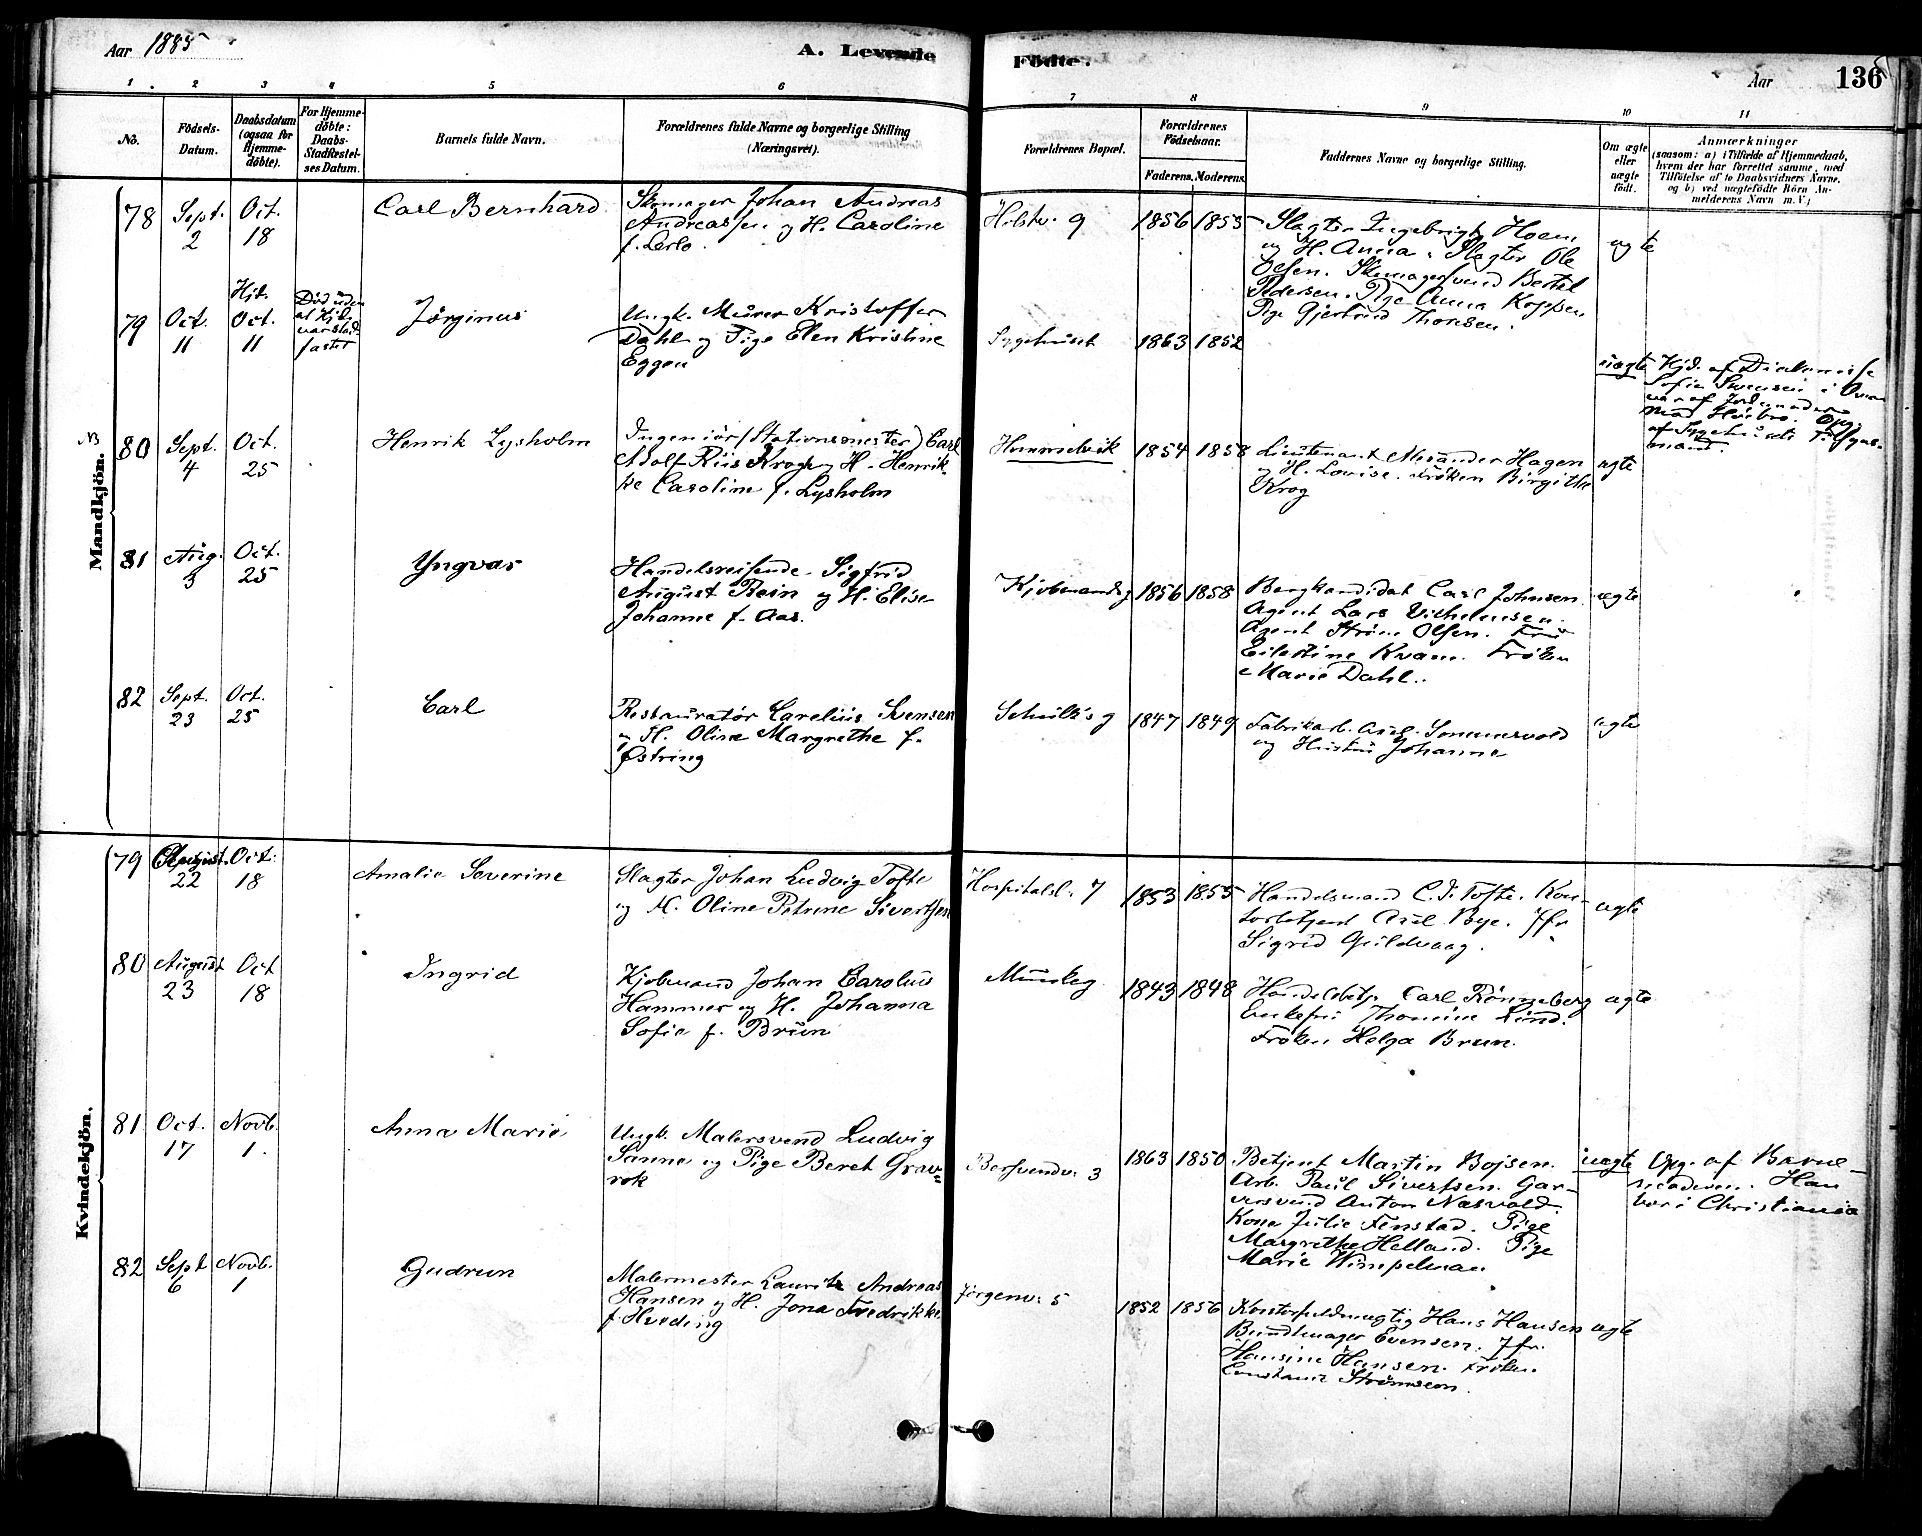 Aar 1885
A. Levende
Fødte.
Aar
136
1 2 3 4 5 6 7 8 9 10 11
No.
Födsels-
Datum.
Daabsdatum
(ogsaa for
Hjemme-
döbte).
For Hjemme-
döbte:
Daabs-
Stadfæstel-
ses Datum.
Barnets fulde Navn.
Forældrenes fulde Navne og borgerlige Stilling
(Næringsvei).
Forældrenes Bopæl.
Forældrenes
Födselsaar.
Faderens. Moderens.
Faddernes Navne og borgerlige Stilling.
Om ægte
eller
uægte
født.
Anmærkninger
(saasom: a) i Tilfælde af Hjemmedaab,
hvem der har forrettet samme, med
Tilföielse af to Daabsvidners Navne,
og b) ved uægtefödte Börn An-
melderens Navn m. V.)
Mandkjön.
78
Sept.
2
Oct.
18
Carl Bernhard
Skomager Johan Andreas
Andreassen og H. Caroline
f. Lerlo.
Holstv. 9
1856 1855
Slagter Ingebrigt Hoem
og H. Anna. Slagter Ole
Olsen. Skomagersvend Bertel
Pedersen. Pige Anna Koppen
Pige Gjertrud Thoresen.
ægte
79
Oct.
11
Hjd.
Oct.
11
Død uden
at Hjd.
var stad-
fæstet
Jørginus
Ungk. Murer Kristoffer
Dahl og Pige Elen Kristine
Eggen
Sygehuset
1863 1852
uægte
Hjd. af Diakonisse
Sofie Svensen i Over
vær af Jordemoder
Opg.
af Sygehusets Tilsyns-
mand.
NB
80
Sept.
4
Oct.
25
Henrik Lysholm
Ingeniør (Stationsmester) Carl
Adolf Riis Krog og H. Henrik-
ke Caroline f. Lysholm
Hommelvik
1854 1858
Lieutenant Alexander Hagen
og H. Lovise. Frøken Birgitte
Krog
ægte
81
Aug.
3
Oct.
25
Yngvar
Handelsreisende Sigfrid
August Rein og H. Elise
Johanne f. Aas.
Kjøbmandsg
1856 1858
Bergkandidat Carl Johnsen.
Agent Lars Vilhelmsen.
Agent Strøm Olsen. Fru
Eilertine Kvam. Frøken
Marie Dahl.
ægte
82
Sept.
23
Oct.
25
Carl
Restauratør Carelius Svensen
og H. Oline Margrethe f.
Østring
Schultz g
1847 1849
Fabrikarb. Axel Sommervold
og Hustru Johanna
ægte
Kvindekjön.
79
August.
22
Oct.
18
Amalie Severine
Slagter Johan Ludvig Tofte
og H. Oline Petrine Sivertsen
Hospitalsl. 7
1853 1855
Handelsmand C. J. Tofte. Kon-
torbetjent Axel Bye. Jfr
Sigrid Guldvaag.
ægte
80
August
23
Oct
18
Ingrid
Kjøbmand Johan Carolus
Hammer og H. Johanna
Sofie f. Brun
Munkeg
1843 1848
Handelsbetj. Carl Rønneberg
Enkefru Thomine Lund.
Frøken Helga Brun.
ægte
81
Oct.
17
Novb.
1.
Anna Marie
Ungk. Malersvend Ludvig
Sanne og Pige Beret Grav-
rok
Bersvendv. 3
1863 1850
Betjent Martin Bojsen.
Arb. Paul Sivertsen. Gar-
versvend Anton Næsvold.
Kone Julie Fenstad. Pige
Margrethe Helland. Pige
Marie Wimpelman
uægte
Opg. af Barne-
moderen. Han
bor i Christiania
82
Sept
6
Novb.
1
Gudrun
Malermester Lauritz Andreas
Hansen og H. Jona Fredrikke
f. Hveding
Jørgenv. 5
1852 1856
Kontorfuldmægtig Hans Hansen
Bundtmager Evensen. Jfr.
Hansine Hansen. Frøken
Constance Strømsem.
ægte